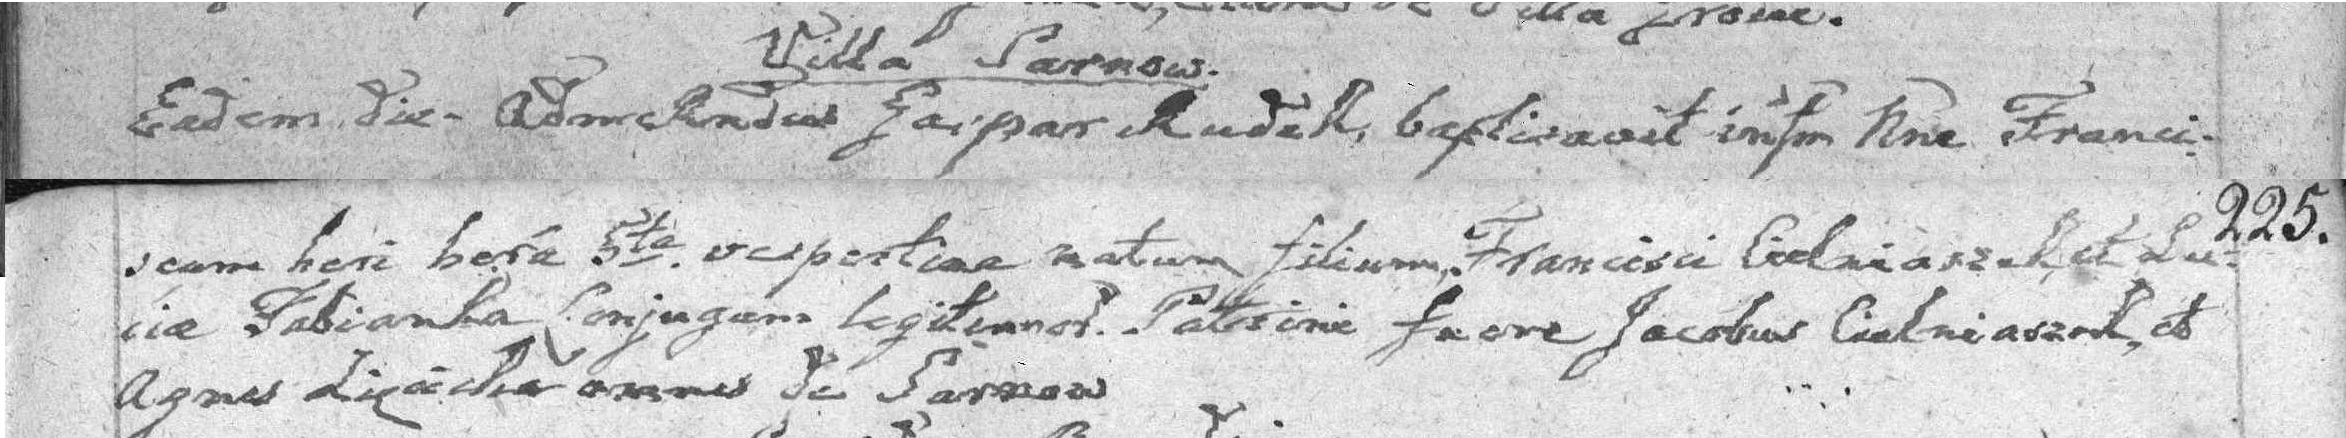 Villa Parnow.
Eadem die. AdmRndus Gaspar Rudek, baptisavit infm Nne Franci-
225.
scum heri hora 5ta. vespertina natum filium, Francisci Cielniaszek, et Lu-
ciæ Fabianka Conjugum legitimor. Patrini fuere Jacobus Cielniaszek, et
Agnes omnes de Parnow